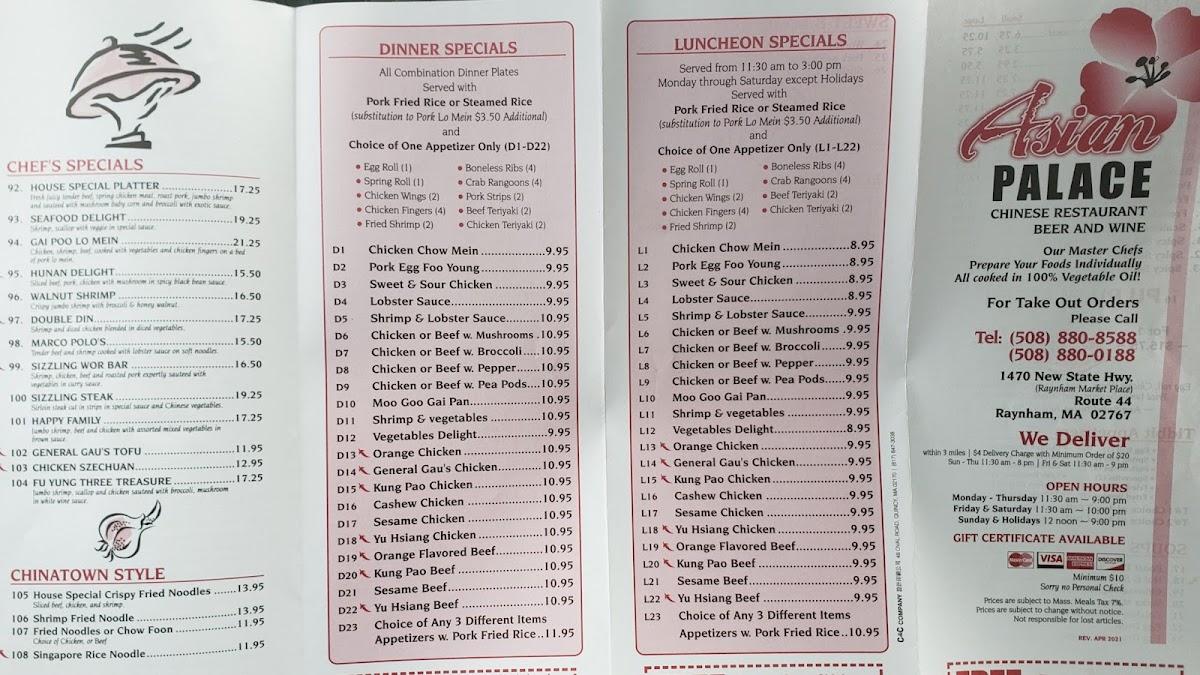 CHEF'S SPECIALS
92. HOUSE SPECIAL PLATTER ..................17.25
Fresh juicy tender beef, spring chicken meat, roast pork, jumbo shrimp
and sauteed with mushroom baby corn and broccoli with exotic sauce.
93. SEAFOOD DELIGHT ..................19.25
Shrimp, scallop with veggie in special sauce.
94. GAI POO LO MEIN ..................21.25
Chicken, shrimp, beef, cooked with vegetables and chicken fingers on a bed
of pork lo mein.
95. HUNAN DELIGHT ..................15.50
Sliced beef, pork, chicken with mushroom in spicy black bean sauce.
96. WALNUT SHRIMP ..................16.50
Crispy jumbo shrimp with broccoli & honey walnut.
97. DOUBLE DIN ..................17.25
Shrimp and diced chicken blended in diced vegetables.
98. MARCO POLO'S ..................15.50
Tender beef and shrimp cooked with lobster sauce on soft noodles.
99. SIZZLING WOR BAR ..................16.50
Shrimp, chicken, beef and roasted pork expertly sauteed with
vegetables in curry sauce.
100 SIZZLING STEAK ..................19.25
Sirloin steak cut in strips in special sauce and Chinese vegetables.
101 HAPPY FAMILY ..................17.25
Jumbo shrimp, beef and chicken with assorted mixed vegetables in
brown sauce.
102 GENERAL GAU'S TOFU ..................11.95
103 CHICKEN SZECHUAN ..................12.95
104 FU YUNG THREE TREASURE ..................17.25
Jumbo shrimp, scallop and chicken sauteed with broccoli, mushroom
in white wine sauce.
CHINATOWN STYLE
105 House Special Crispy Fried Noodles ......13.95
Sliced beef, chicken, and shrimp.
106 Shrimp Fried Noodle ..................13.95
107 Fried Noodles or Chow Foon ..................11.95
Choice of Chicken, or Beef
108 Singapore Rice Noodle ..................11.95
DINNER SPECIALS
All Combination Dinner Plates
Served with
Pork Fried Rice or Steamed Rice
(substitution to Pork Lo Mein $3.50 Additional)
and
Choice of One Appetizer Only (D1-D22)
• Egg Roll (1) • Boneless Ribs (4)
• Spring Roll (1) • Crab Rangoons (4)
• Chicken Wings (2) • Pork Strips (2)
• Chicken Fingers (4) • Beef Teriyaki (2)
• Fried Shrimp (2) • Chicken Teriyaki (2)
D1 Chicken Chow Mein ..............9.95
D2 Pork Egg Foo Young ..............9.95
D3 Sweet & Sour Chicken ..............9.95
D4 Lobster Sauce ..............9.95
D5 Shrimp & Lobster Sauce ..............10.95
D6 Chicken or Beef w. Mushrooms .10.95
D7 Chicken or Beef w. Broccoli .....10.95
D8 Chicken or Beef w. Pepper .......10.95
D9 Chicken or Beef w. Pea Pods....10.95
D10 Moo Goo Gai Pan ..............10.95
D11 Shrimp & vegetables ..............10.95
D12 Vegetables Delight ..............9.95
D13 Orange Chicken ..............10.95
D14 General Gau's Chicken ..............10.95
D15 Kung Pao Chicken ..............10.95
D16 Cashew Chicken ..............10.95
D17 Sesame Chicken ..............10.95
D18 Yu Hsiang Chicken ..............10.95
D19 Orange Flavored Beef ..............10.95
D20 Kung Pao Beef ..............10.95
D21 Sesame Beef ..............10.95
D22 Yu Hsiang Beef ..............10.95
D23 Choice of Any 3 Different Items
Appetizers w. Pork Fried Rice..11.95
LUNCHEON SPECIALS
Served from 11:30 am to 3:00 pm
Monday through Saturday except Holidays
Served with
Pork Fried Rice or Steamed Rice
(substitution to Pork Lo Mein $3.50 Additional)
and
Choice of One Appetizer Only (L1-L22)
• Egg Roll (1) • Boneless Ribs (4)
• Spring Roll (1) • Crab Rangoons (4)
• Chicken Wings (2) • Beef Teriyaki (2)
• Chicken Fingers (4) • Chicken Teriyaki (2)
• Fried Shrimp (2)
L1 Chicken Chow Mein ..............8.95
L2 Pork Egg Foo Young ..............8.95
L3 Sweet & Sour Chicken ..............8.95
L4 Lobster Sauce ..............8.95
L5 Shrimp & Lobster Sauce ..............9.95
L6 Chicken or Beef w. Mushrooms .9.95
L7 Chicken or Beef w. Broccoli .......9.95
L8 Chicken or Beef w. Pepper ........9.95
L9 Chicken or Beef w. Pea Pods.....9.95
L10 Moo Goo Gai Pan ..............9.95
L11 Shrimp & vegetables ..............9.95
L12 Vegetables Delight ..............8.95
L13 Orange Chicken ..............9.95
L14 General Gau's Chicken ..............9.95
L15 Kung Pao Chicken ..............9.95
L16 Cashew Chicken ..............9.95
L17 Sesame Chicken ..............9.95
L18 Yu Hsiang Chicken ..............9.95
L19 Orange Flavored Beef ..............9.95
L20 Kung Pao Beef ..............9.95
L21 Sesame Beef ..............9.95
L22 Yu Hsiang Beef ..............9.95
L23 Choice of Any 3 Different Items
Appetizers w. Pork Fried Rice..10.95
C4C COMPANY 46 OVAL ROAD, QUINCY, MA 02170 | (617) 847-3038
Asian
PALACE
CHINESE RESTAURANT
BEER AND WINE
Our Master Chefs
Prepare Your Foods Individually
All cooked in 100% Vegetable Oil!
For Take Out Orders
Please Call
Tel: (508) 880-8588
(508) 880-0188
1470 New State Hwy.
(Raynham Market Place)
Route 44
Raynham, MA 02767
We Deliver
within 3 miles | $4 Delivery Charge with Minimum Order of $20
Sun - Thu 11:30 am - 8 pm | Fri & Sat 11:30 am - 9 pm
OPEN HOURS
Monday - Thursday 11:30 am ~ 9:00 pm
Friday & Saturday 11:30 am ~ 10:00 pm
Sunday & Holidays 12 noon ~ 9:00 pm
GIFT CERTIFICATE AVAILABLE
MasterCard VISA AMERICAN EXPRESS DISCOVER
Minimum $10
Sorry no Personal Check
Prices are subject to Mass. Meals Tax 7%.
Prices are subject to change without notice.
Not responsible for lost articles.
REV. APR 2021
FREE